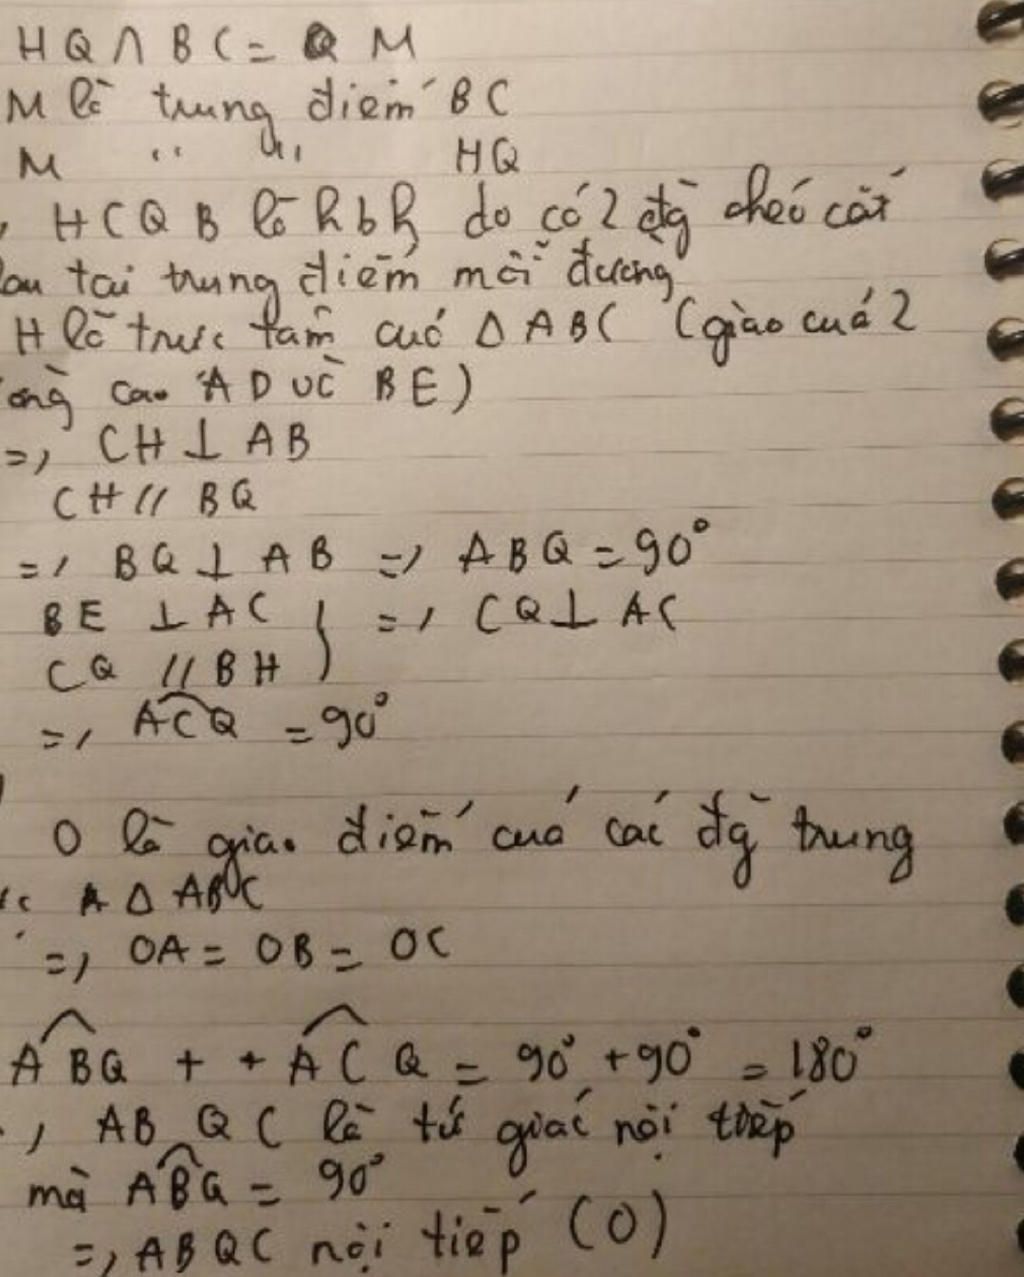 HQ ∩ BC = M
M là trung điểm BC
M " " HQ
, HCQB là hbh do có 2 đg chéo cắt
au tại trung điểm mỗi đường
H là trực tâm của Δ ABC (giao của 2
ờng cao AD và BE)
=> CH ⊥ AB
CH // BQ
=> BQ ⊥ AB => ABQ = 90°
BE ⊥ AC } => CQ ⊥ AC
CQ // BH
=> ACQ = 90°
O là giao điểm của các đg trung
ực Δ ABC
=> OA = OB = OC
ABQ + + ACQ = 90° + 90° = 180°
, ABQC là tứ giác nội tiếp
mà ABQ = 90°
=> ABQC nội tiếp (O)